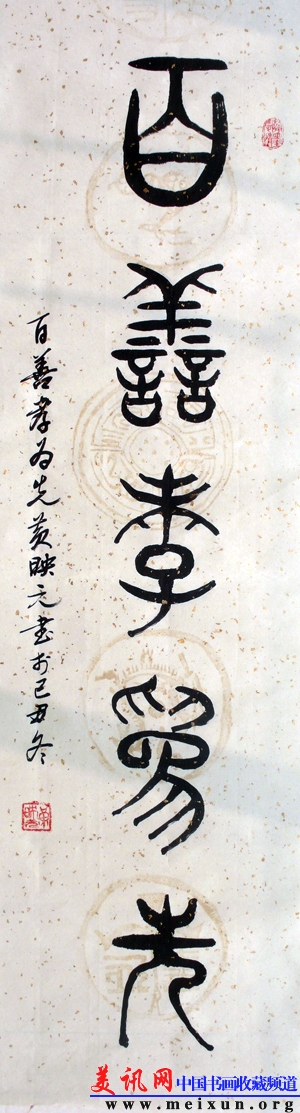 百善孝為先
百善孝为先黄映元书于己丑冬
美讯网 中国书画收藏频道
www.meixun.org